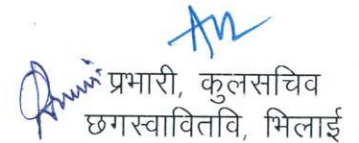 प्रभारी, कुलसचिव
छगस्वावितवि, भिलाई